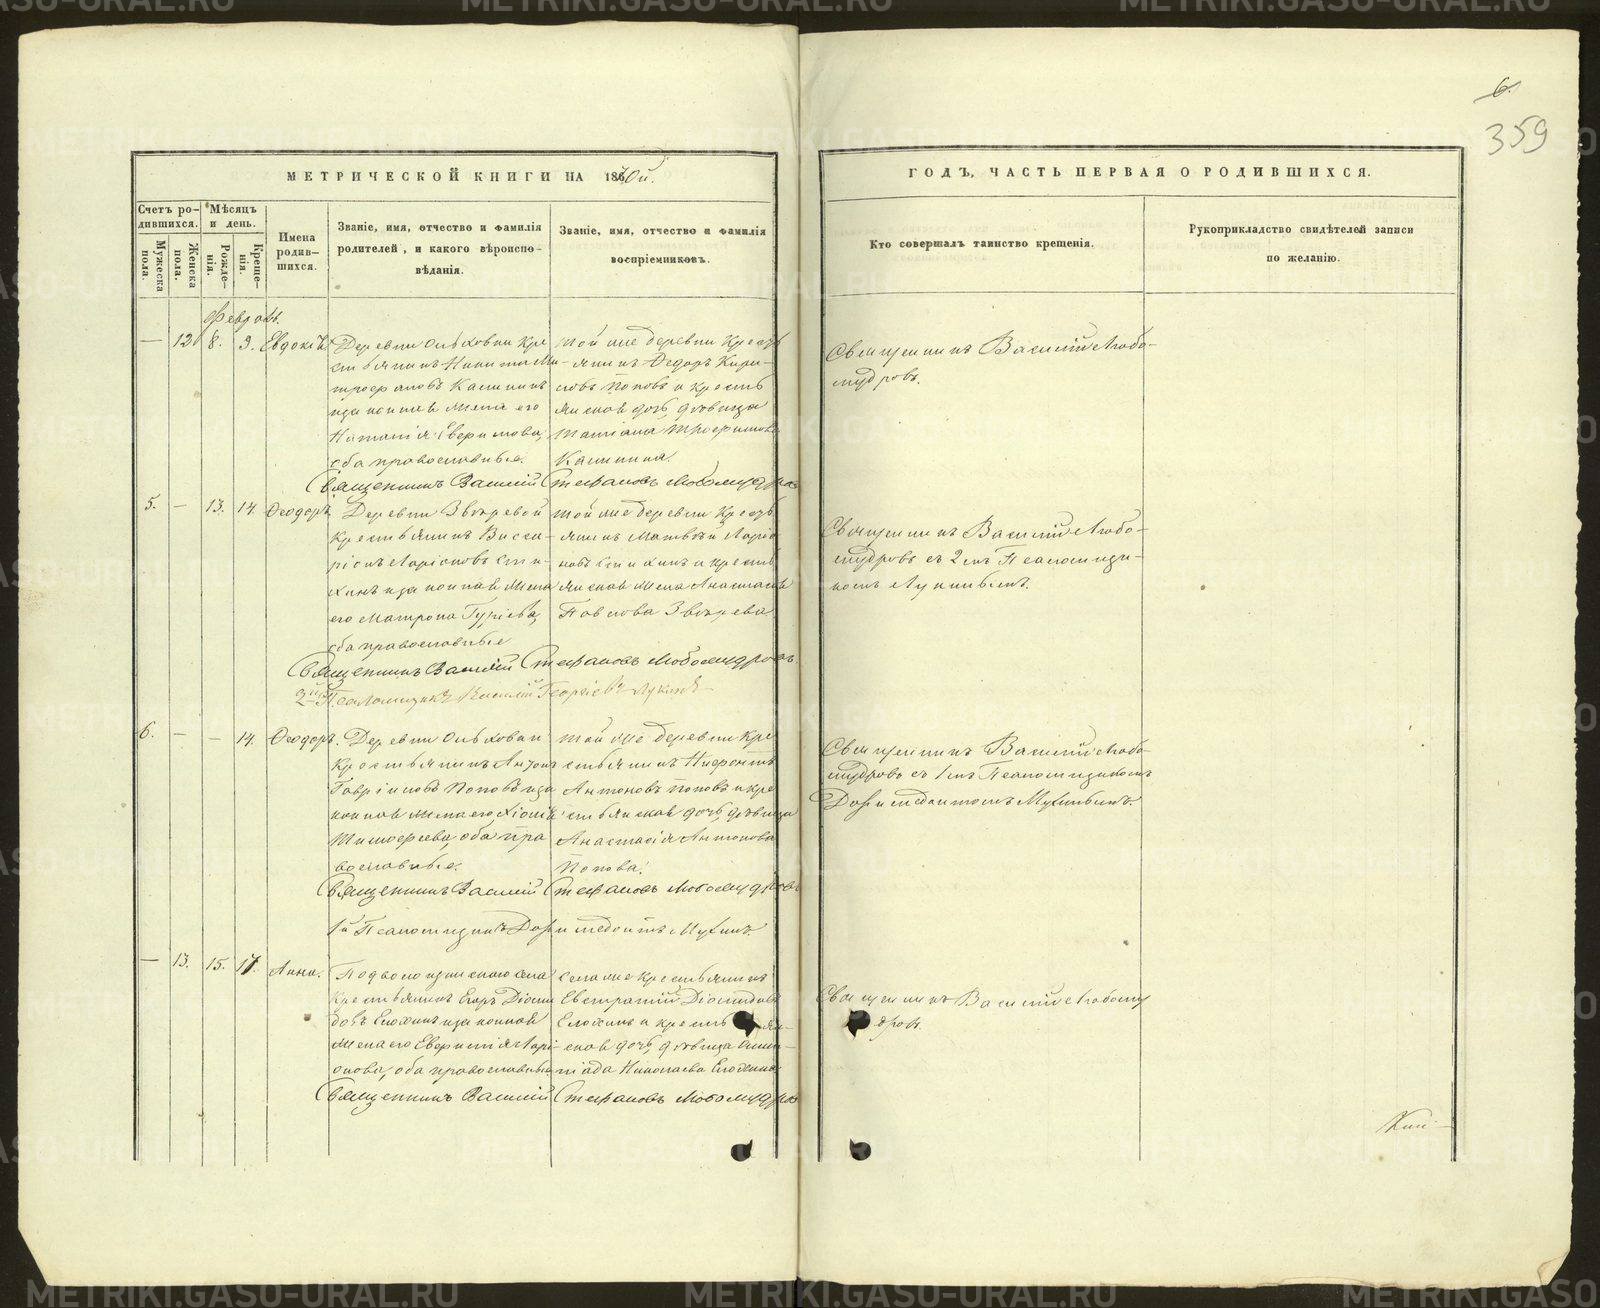 6.
359
МЕТРИЧЕСКОЙ КНИГИ НА 1870й.
ГОДЪ, ЧАСТЬ ПЕРВАЯ О РОДИВШИХСЯ.
Счетъ ро-
дившихся.
Мужеска пола.
Женска пола.
Мѣсяцъ
и день.
Рожде-
нія.
Креще-
нія.
Имена
родив-
шихся.
Званіе, имя, отчество и фамилія
родителей, и какого вѣроиспо-
вѣданія.
Званіе, имя, отчество и фамилія
воспріемниковъ.
Кто совершалъ таинство крещенія.
Рукоприкладство свидѣтелей записи
по желанію.
Февраль.
— 12 8. 9. Евдокія
Деревни Ольховки Кре
стьянинъ Никита Ми
трофановъ Калининъ
и законная жена его
Наталія
оба православные.
той же деревни Кресть
янинъ Ѳедоръ Кири-
ловъ Поповъ и кресть
янская дочь дѣвица
Татіана Трофимова
Калинина.
Священникъ Василій Любо-
мудровъ.
Священникъ Василій Стефановъ Любомудровъ
5. — 13. 14. Ѳеодоръ
Деревни Звѣревой
крестьянинъ Висса-
ріонъ Ларіоновъ
и законная жена
его Матрона Гурiева,
оба православные
той же деревни Кресть
янинъ Матвѣй Ларіо
новъ и кресть
янская жена Анастасія
Павлова Звѣрева
Священникъ Василій Любо-
мудровъ съ 2мъ Псаломщи-
комъ Лукинымъ.
Священникъ Василій Стефановъ Любомудровъ.
2й Псаломщикъ Василій Георгіевъ Лукинъ
6. — — 14. Ѳеодоръ.
Деревни Ольховки
Крестьянинъ Антонъ
Гавріиловъ Поповъ и за
конная жена его Хіонія
Тимоѳеева, оба пра
вославные.
той же деревни Кре
стьянинъ
Антоновъ Поповъ и кре
стьянская дочь дѣвица
Анастасія Антонова
Попова.
Священникъ Василій Любо-
мудровъ съ 1мъ Псаломщикомъ
Доримедонтомъ Мухинымъ.
Священникъ Василій Стефановъ Любомудровъ
1й Псаломщикъ Доримедонтъ Мухинъ.
— 13. 15. 17. Анна.
села
Крестьянинъ Егоръ Діоми
довъ Елохинъ и законная
жена его Лари-
онова, оба православные
села же крестьянинъ
Евстратій Діомидовъ
Елохинъ и кресть ян-
ская дочь дѣвица Олим-
піада Николаева Елохина
Священникъ Василій Любому
дровъ.
Священникъ Василій Стефановъ Любомудровъ
METRIKI.GASO-URAL.RU